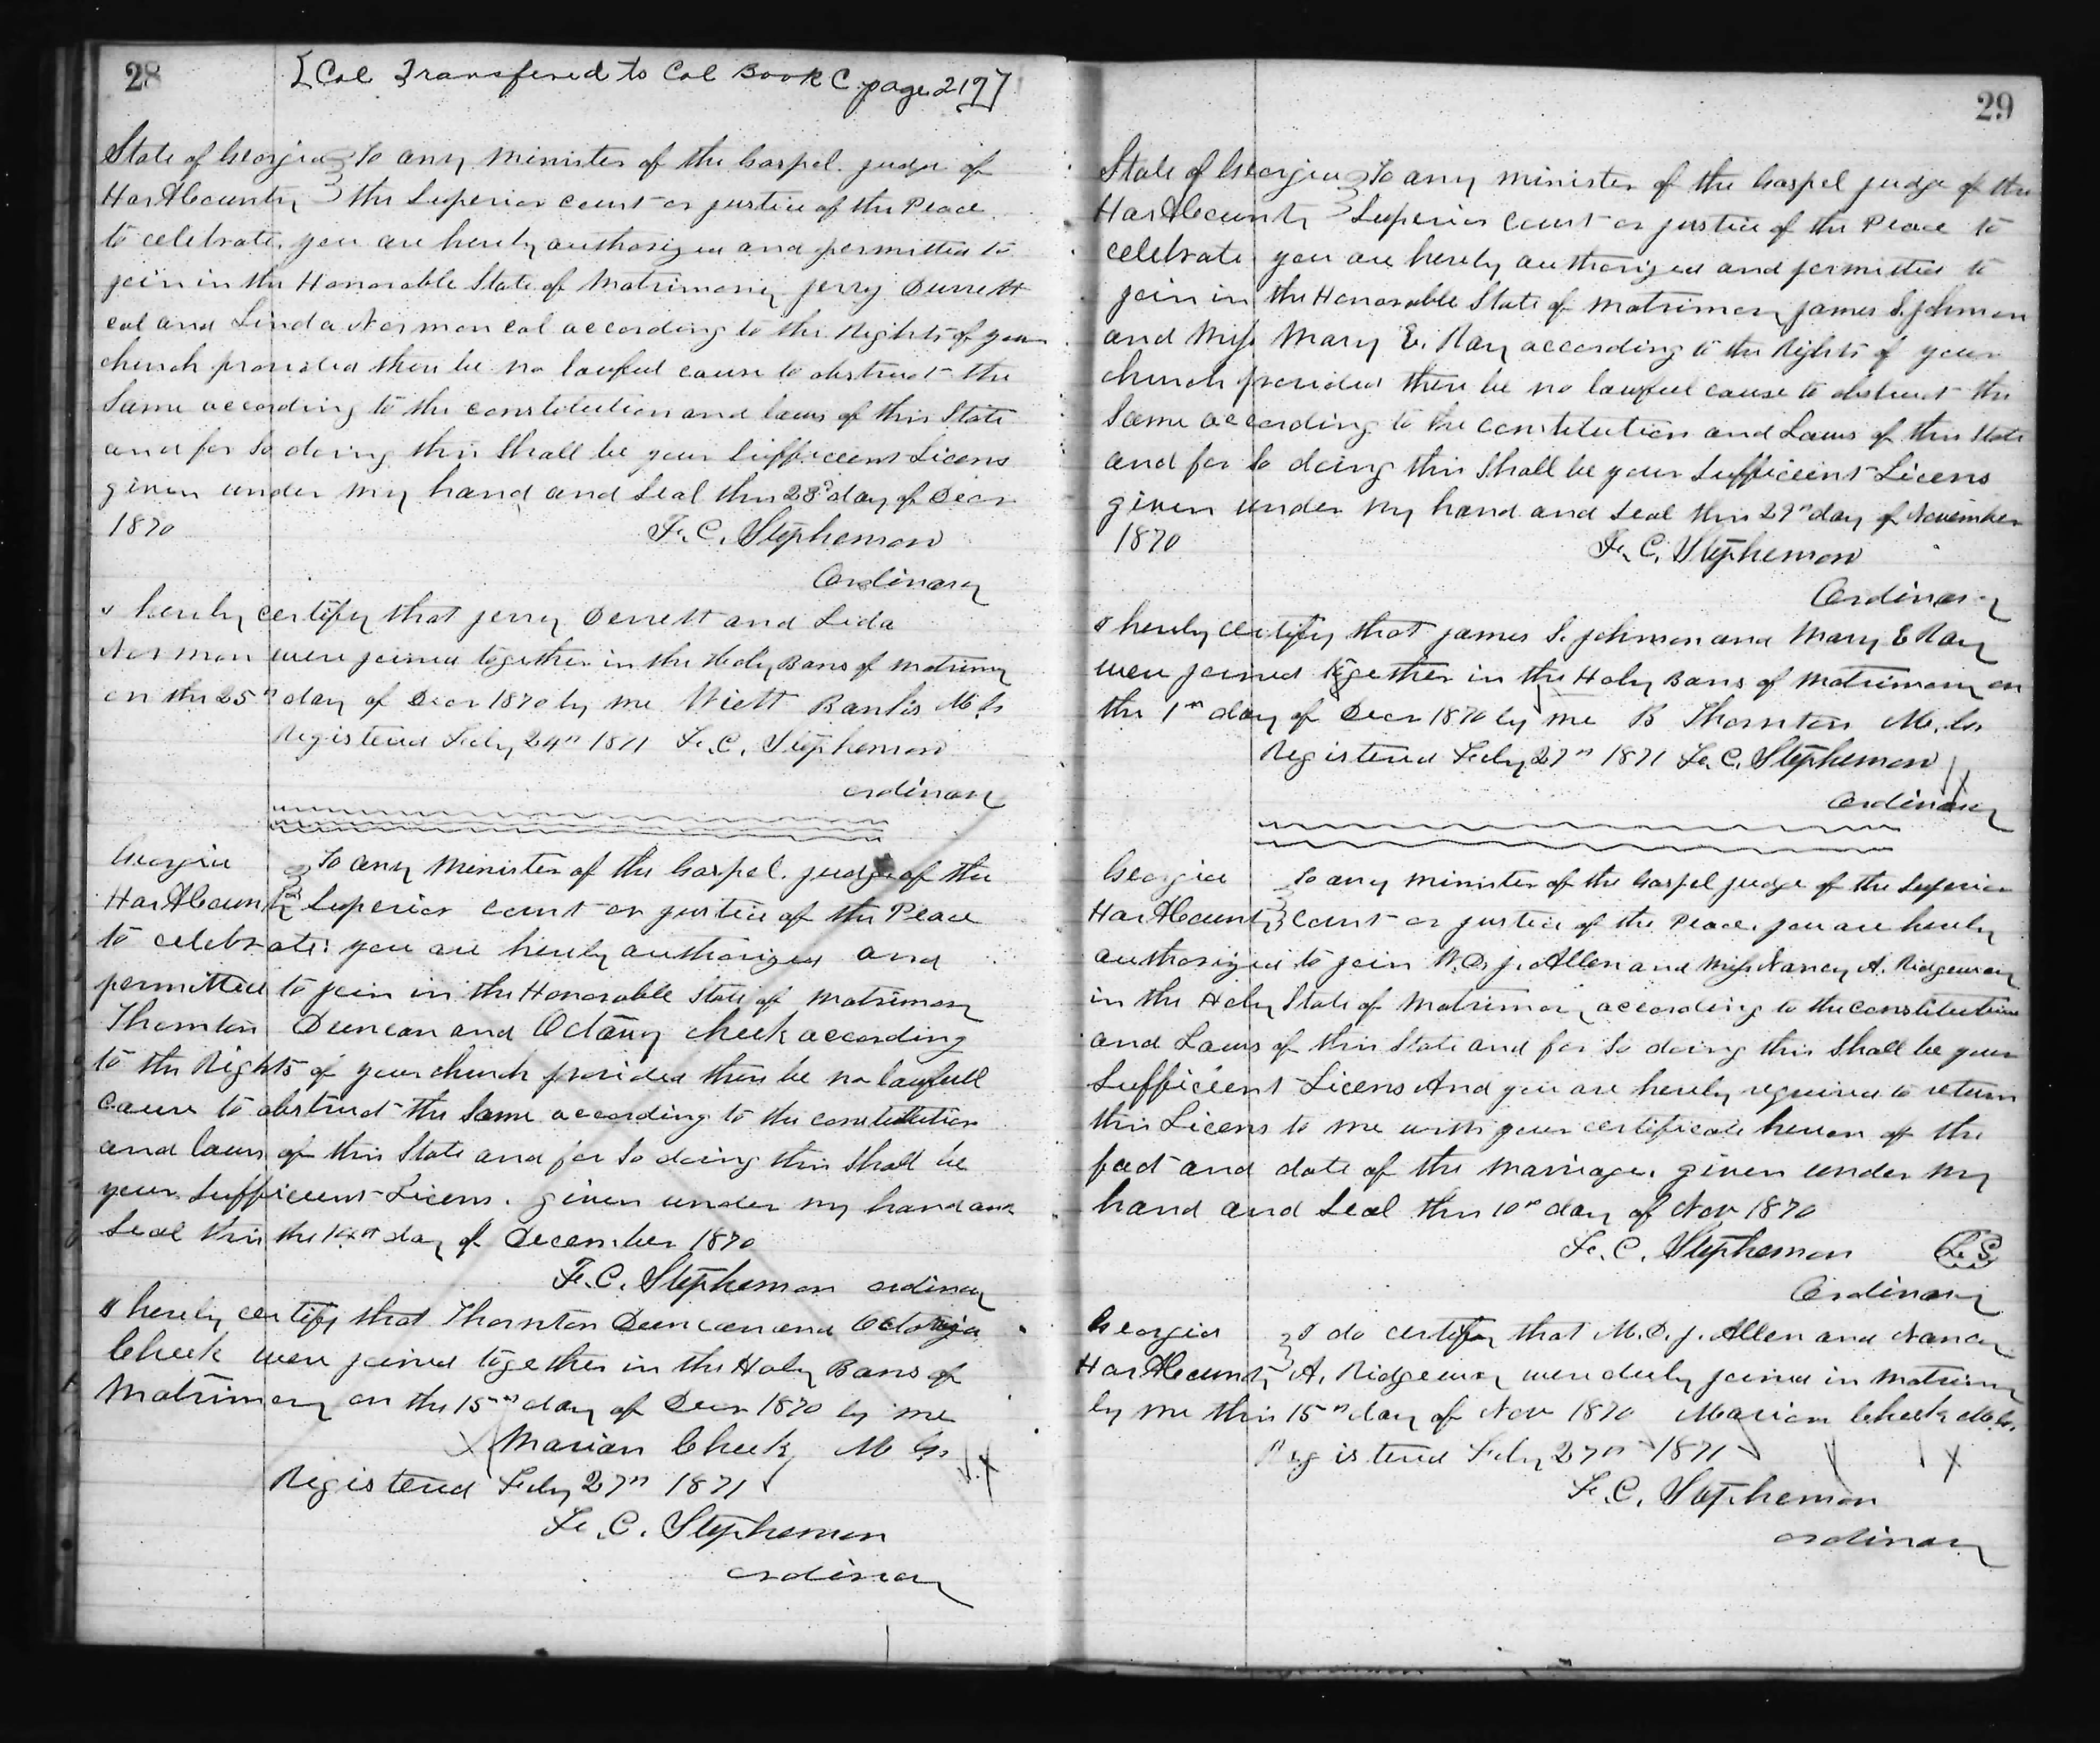 28
[Col Transfered to Col Book C page 217]
State of Georgia To any Minister of the Gospel. judge of
Hart County the Superior court or justice of the Peace
to celebrate. you are hereby authorized and permitted to
join in the Honorable State of Matrimony Jerry Durrett
col and Linda Norman col according to the Rights of your
church provided there be no lawful cause to obstruct the
Same according to the constitution and laws of this State
and for So doing this Shall be your Sufficient Licens
given under my hand and Seal this 23d day of Decr
1870 F. C. Stephenson
Ordinary
I hereby certify that Jerry Derrett and Lida
Norman were joined together in the Holy Bans of Matrimony
on the 25th day of Decr 1870 by me Bankis M G
Registered Feby 24th 1871 F. C. Stephenson
ordinary
Georgia To any Minister of the Gospel. judge of the
Hart County Superior court or justice of the Peace
to celebrate: you are hereby authorized and
permitted to join in the Honorable State of Matrimony
Thornton Duncan and Octavy Cheek according
to the Rights of your church provided there be no lawfull
cause to obstruct the Same according to the constitution
and laws of this State and for So doing this Shall be
your Sufficient Licens. given under my hand and
Seal this the 14th day of December 1870
F. C. Stephenson ordinary
I hereby certify that Thornton Duncan and Octavia
Cheek were joined together in the Holy Bans of
Matrimony on the 15th day of Decr 1870 by me
Marian Cheek M G
Registered Feby 27th 1871
F. C. Stephenson
ordinary
29
State of Georgia To any minister of the Gospel judge of the
Hart County Superior Court or justice of the Peace to
celebrate you are hereby authorized and permitted to
join in the Honorable State of Matrimony James S. Johnson
and Miss Mary E. Ray according to the Rights of your
church provided there be no lawful cause to obstruct the
Same according to the constitution and Laws of this State
and for So doing this Shall be your Sufficient Licens
given under my hand and Seal this 29th day of November
1870 F. C. Stephenson
Ordinary
I hereby certify that James S. Johnson and Mary E Ray
were joined together in the Holy Bans of Matrimony on
the 1st day of Decr 1870 by me B Thornton M. G
Registered Feby 27th 1871 F. C. Stephenson
Ordinary
Georgia To any minister of the Gospel judge of the Superior
Hart County Court or justice of the Peace. you are hereby
authorized to join M. D. J. Allen and Miss Nancy A. Ridgeway
in the Holy State of Matrimony according to the constitution
and Laws of this State and for So doing this Shall be your
Sufficient Licens And you are hereby required to return
this Licens to me with your certificate hereon of the
fact and date of the marriage. given under my
hand and Seal this 10th day of Nov 1870
F. C. Stephenson L S
Ordinary
Georgia I do certify that M. D. J. Allen and Nancy
Hart County A. Ridgeway were duly joined in Matrimony
by me this 15th day of Nov 1870 Marian Cheek M G.
Registered Feby 27th 1871
F. C. Stephenson
ordinary